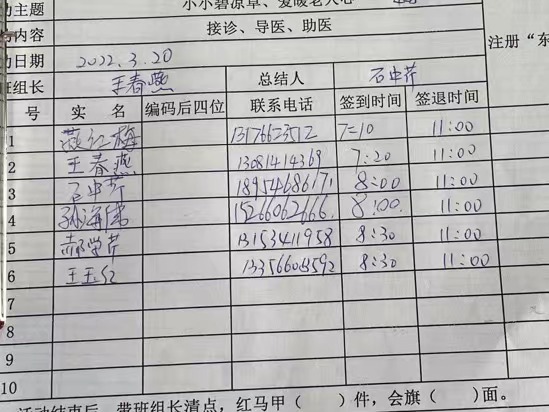 动主题 小小碧凉草、爱暖老人心
内容 接诊、导医、助医
动日期 2022.3.20 注册“东
班组长 王春燕 总结人 石中芹
号 实 名 编码后四位 联系电话 签到时间 签退时间
1 燕红梅 13176623512 7=10 11:00
2 王春燕 13081414369 7:20 11:00
3 石中芹 18954686171 8:00 11:00
4 孙海儒 15266062666. 8:00. 11:00
5 郝学芹 13153411958 8:30 11:00
6 王玉红 13356603592 8:30 11:00
7
8
9
10
活动结束后，带班组长清点，红马甲（ ）件，会旗（ ）面。